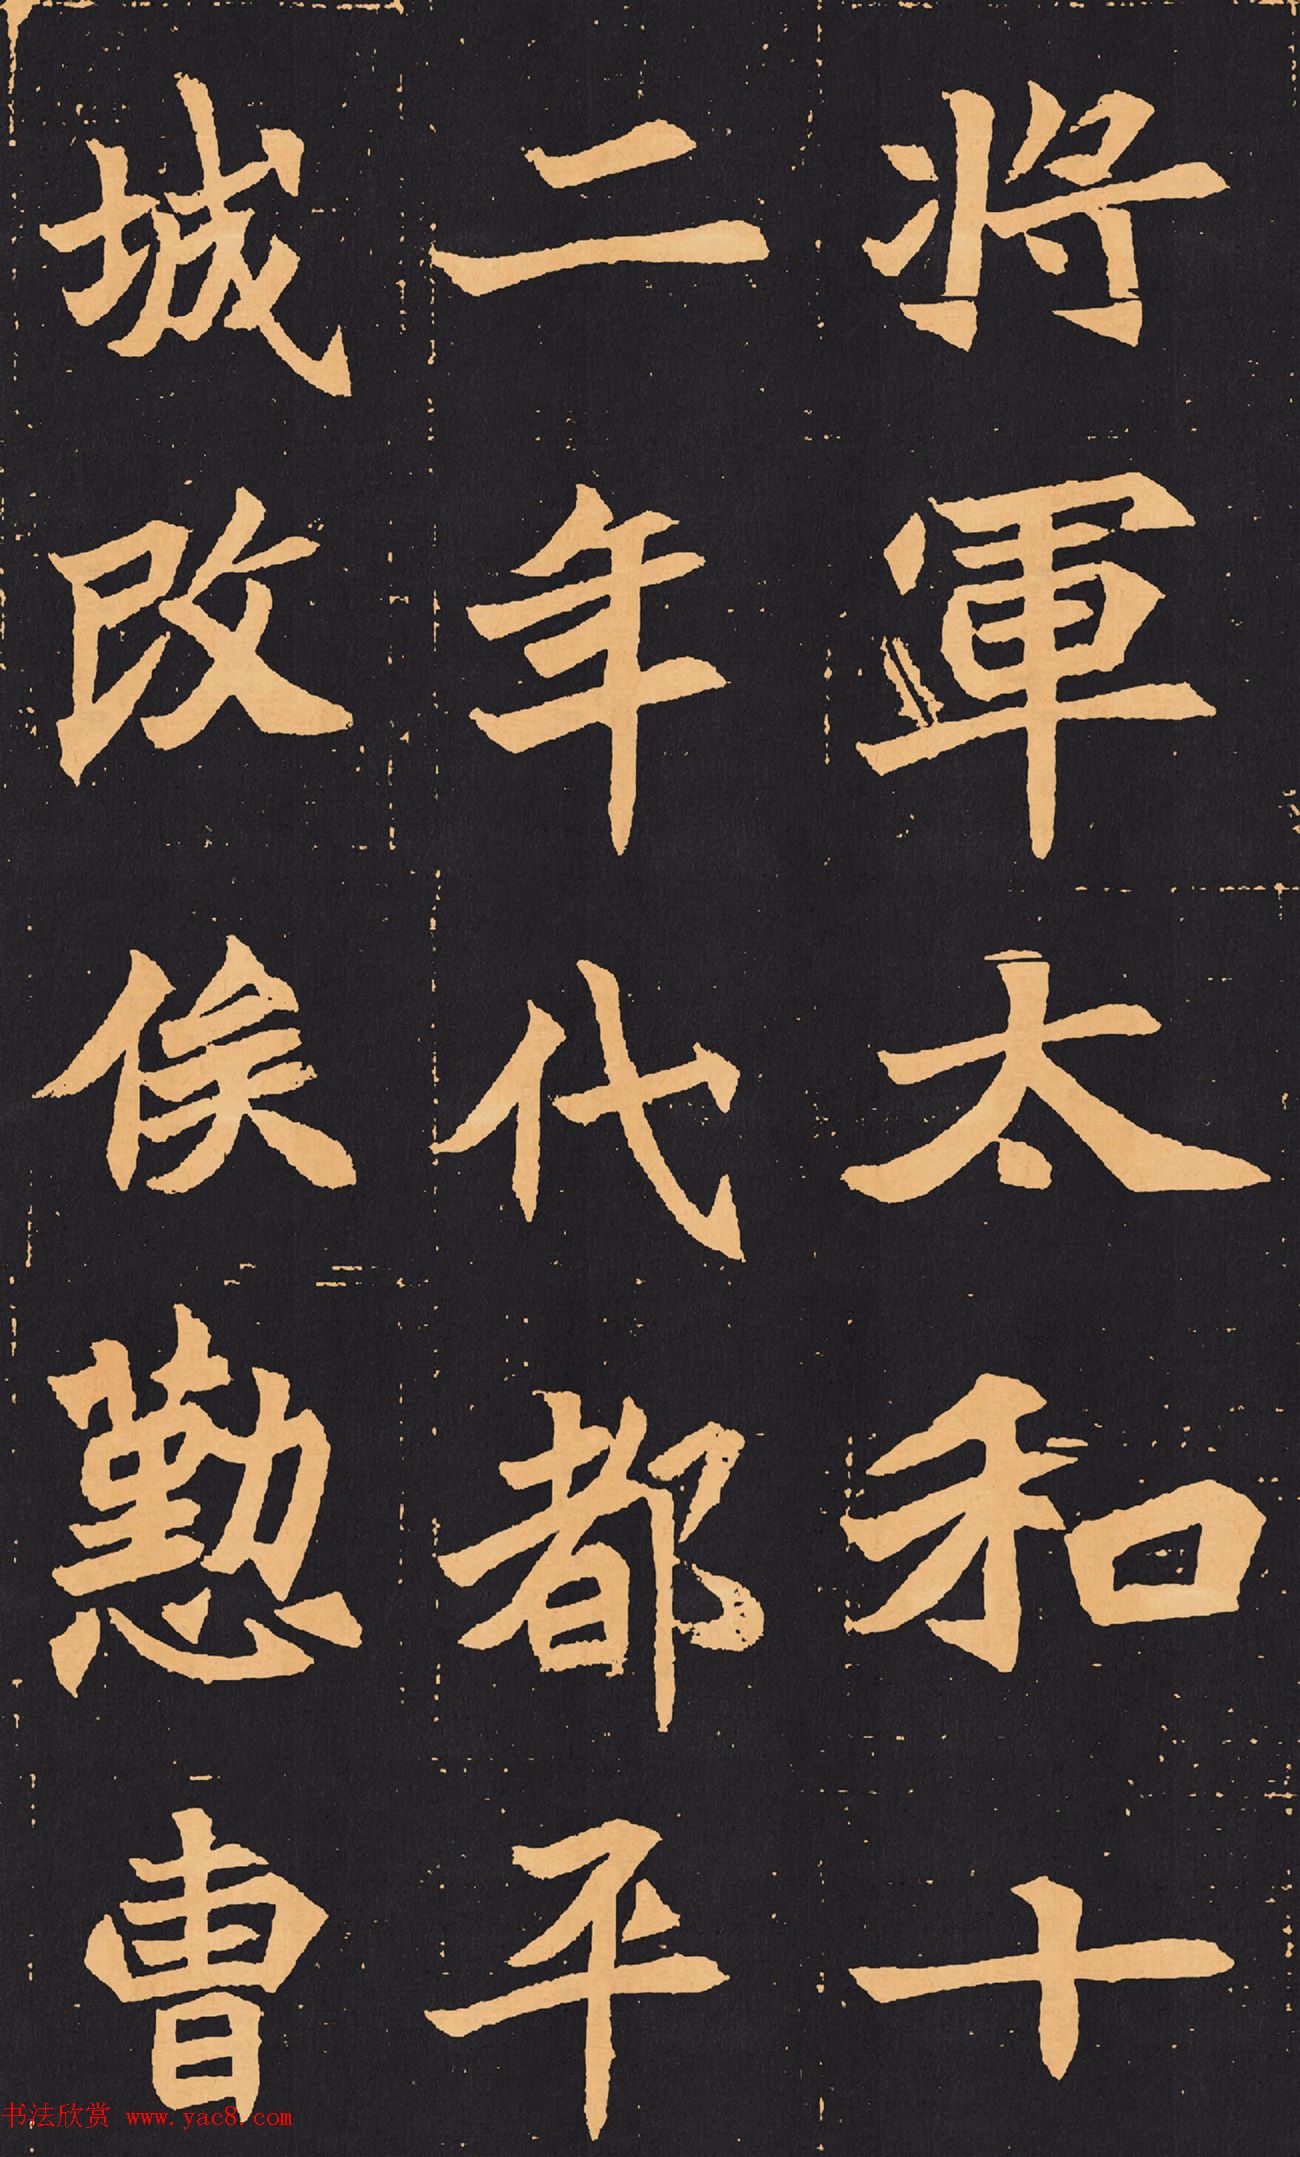 将軍太和十
二年代都平
城改俟懃曹
书法欣赏 www.yac8.com